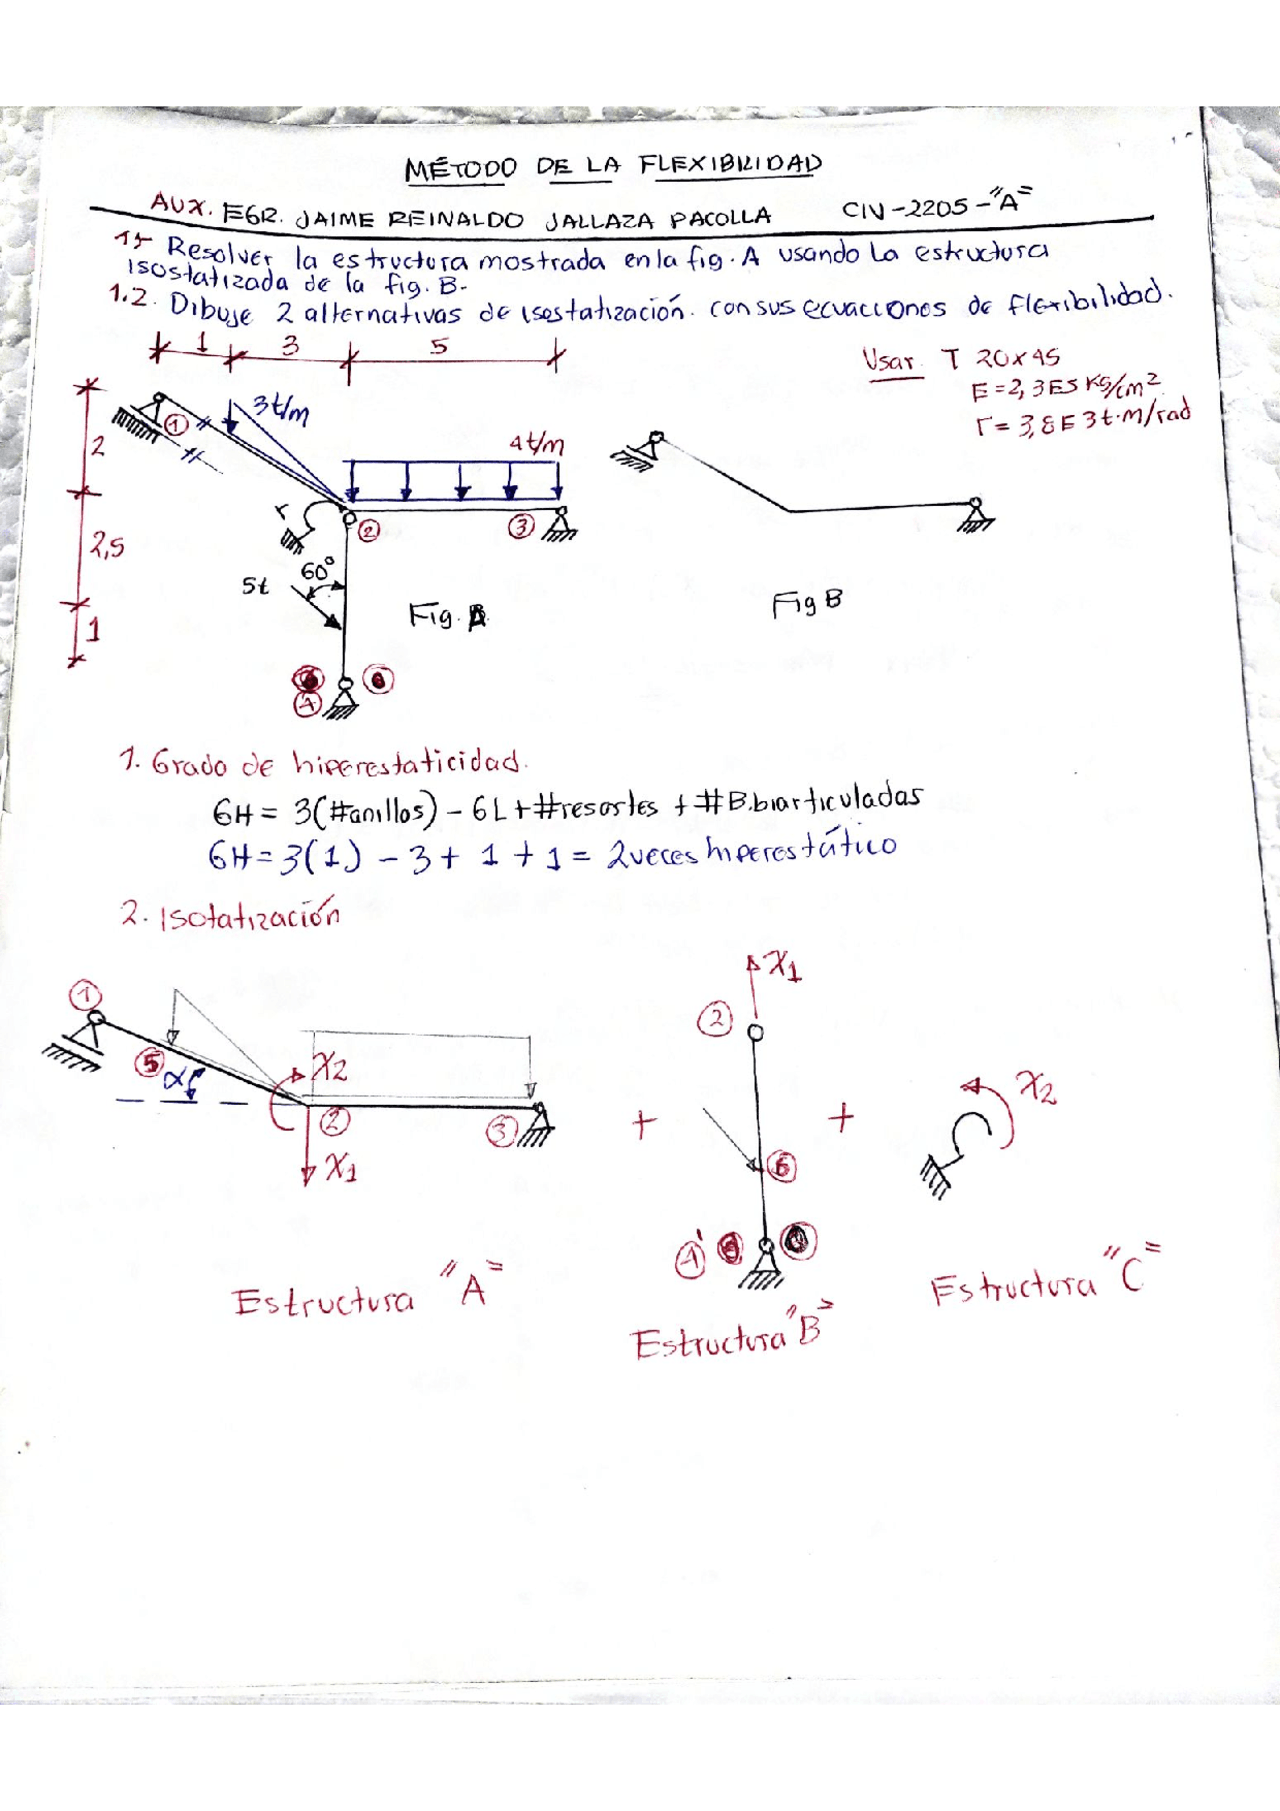 MÉTODO DE LA FLEXIBILIDAD
AUX. EGR. JAIME REINALDO JALLAZA PACOLLA CIV-2205-"A"
1.- Resolver la estructura mostrada en la fig. A usando la estructura
isostatizada de la fig. B.
1.2. Dibuje 2 alternativas de isostatización. con sus ecuaciones de flexibilidad.
1 3 5
Usar T 20x45
E=2,3E5 Kg/cm²
r=3,8E3t.m/rad
2
2,5
1
3t/m
4t/m
1
2
3
r
60°
5t
Fig. A
Fig B
4
1. Grado de hiperestaticidad.
GH = 3(#anillos) - GL + #resortes + #B.biarticuladas
GH = 3(1) - 3 + 1 + 1 = 2 veces hiperestático
2. Isotatización
1
5
α
X2
2
X1
3
+
X1
2
6
4
+
X2
Estructura "A"
Estructura "B"
Estructura "C"